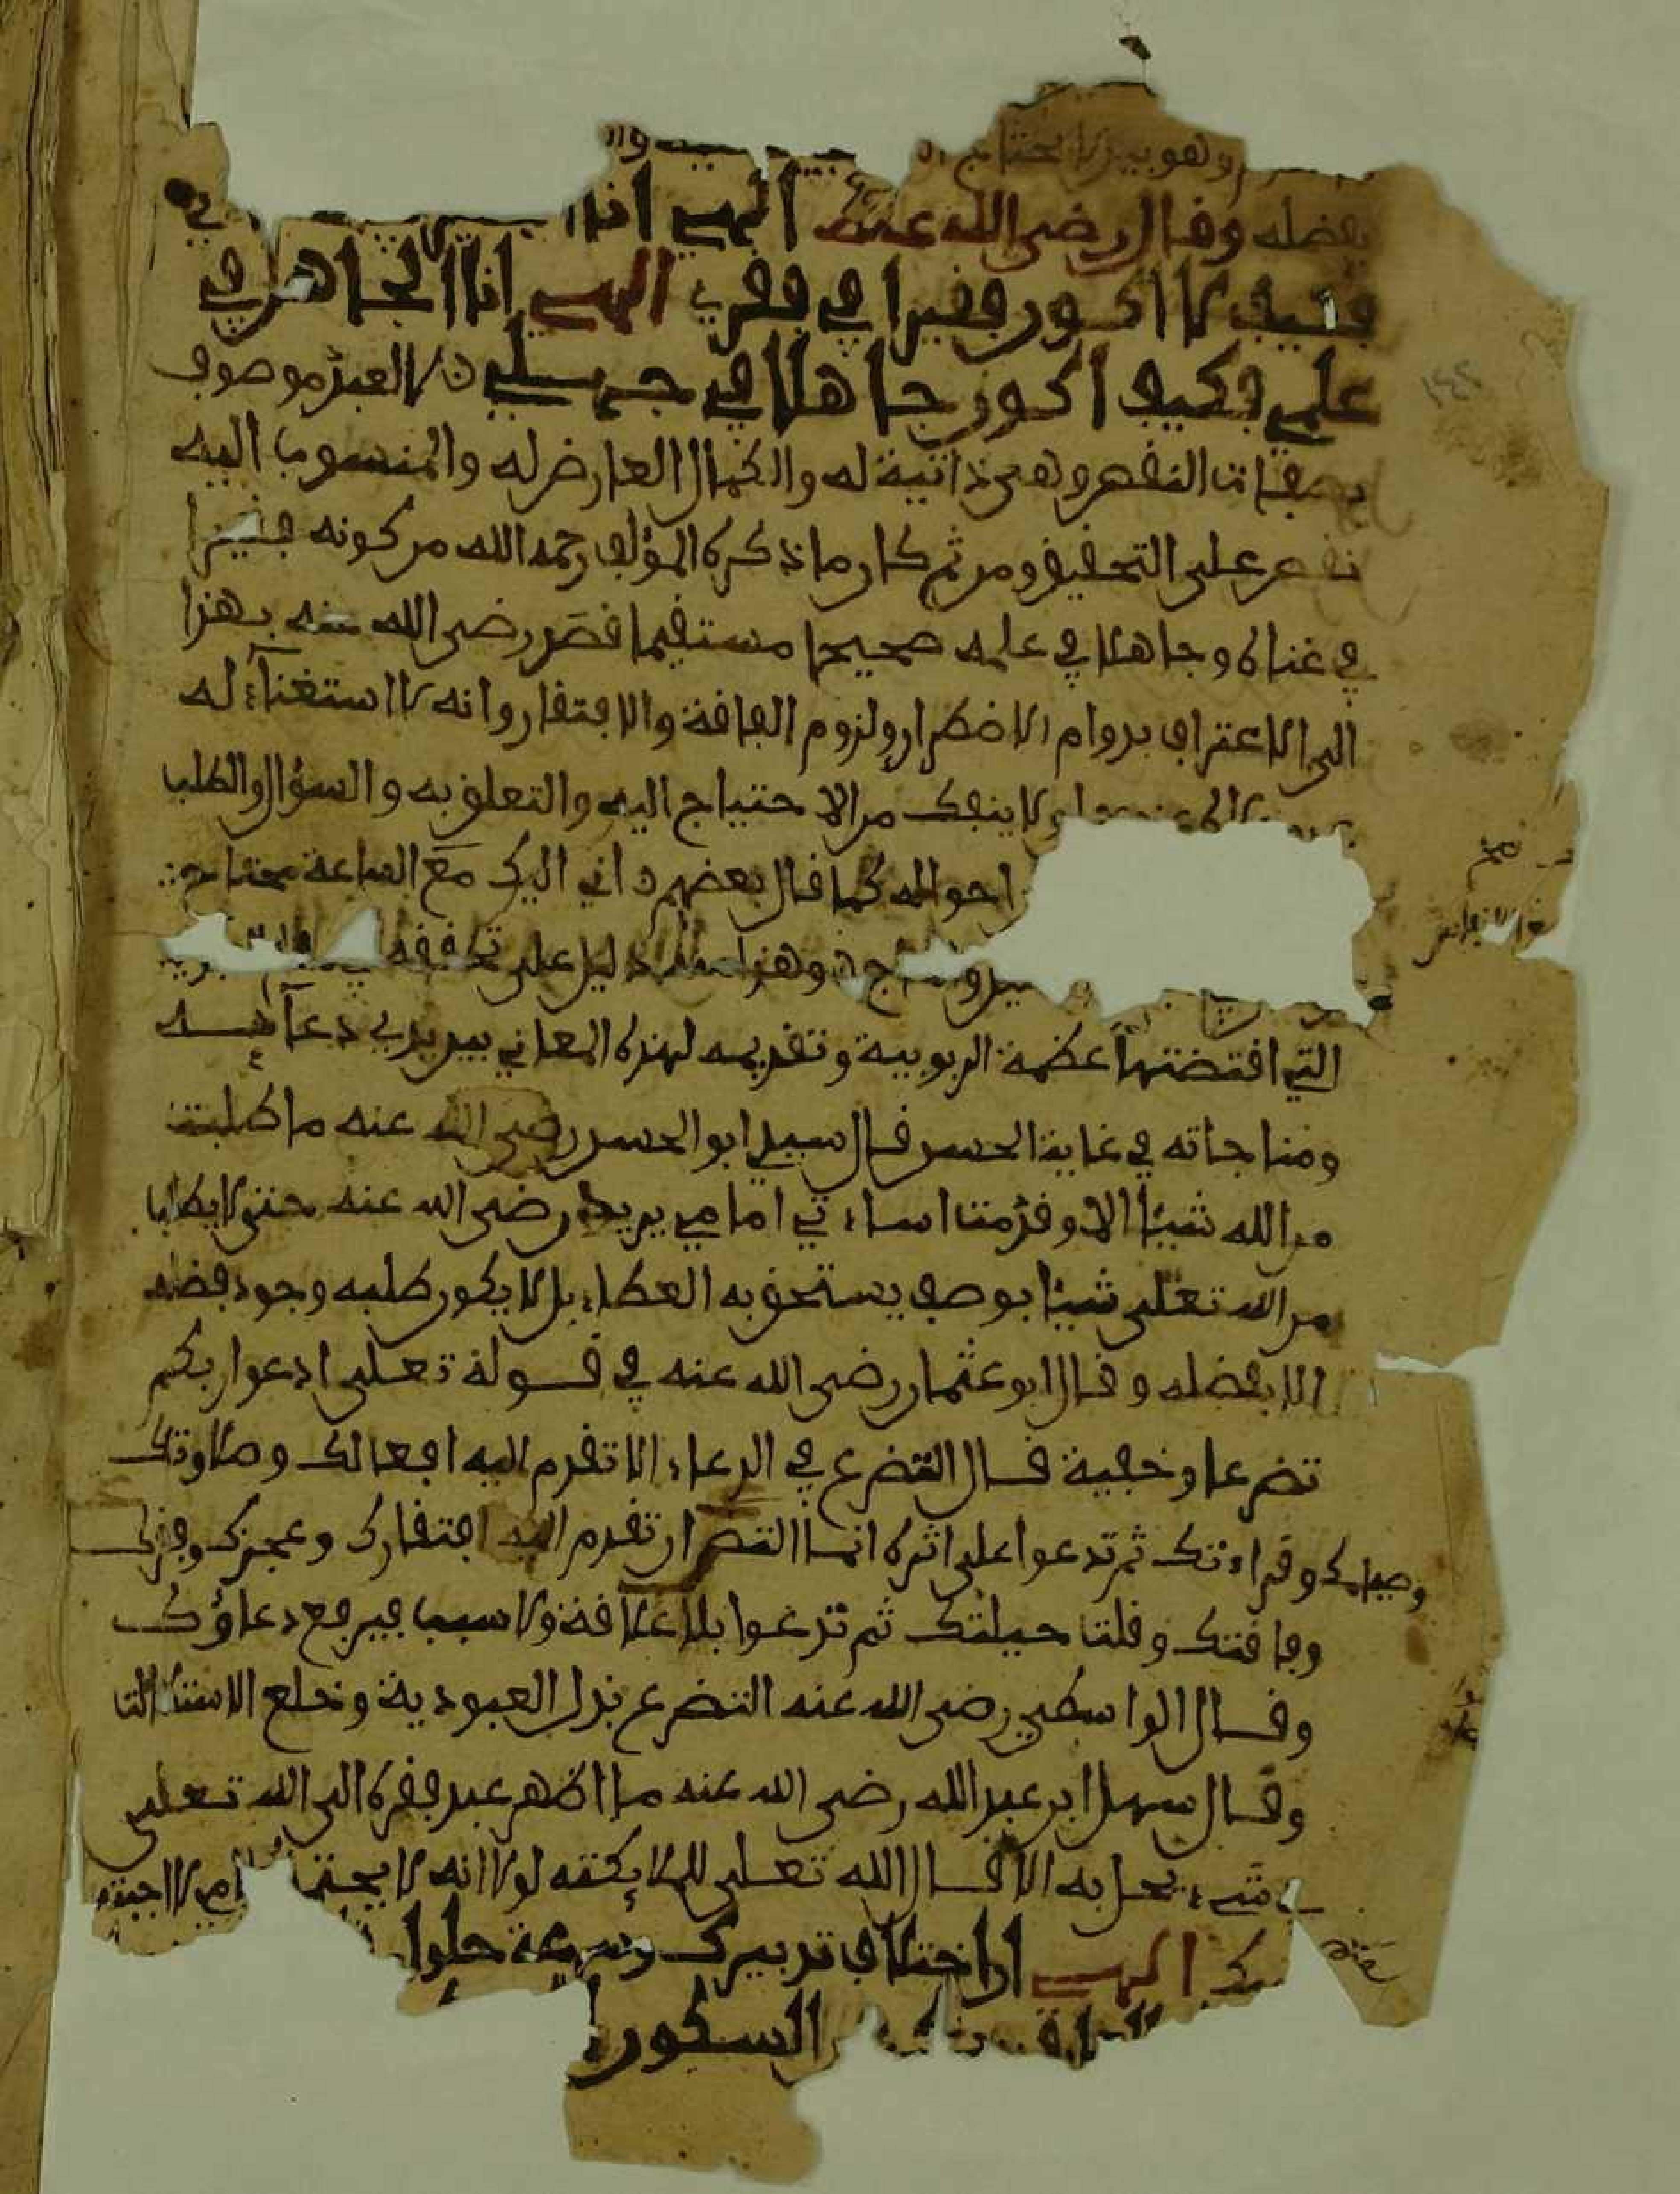 وهو بين الاحتياج
بفضله وقال رضي الله عنه الهي انا في
فكيف لا اكون فقيرا في فقري الهي انا الجاهل في
علمي فكيف اكون جاهلا في جهلي لان العبد موصوف
بصفات النقص وهي ذاتية له والكمال العارض له والمنسوب اليه
نقص على التحقيق ومن ثم كان ما ذكره المؤلف رحمه الله من كونه فقيرا
في غناه وجاهلا في علمه صحيحا مستقيما قصد رضي الله عنه بهذا
الى الاعتراف بدوام الاضطرار ولزوم الفاقة والافتقار وانه لا استغناء له
ولا ينفك من الاحتياج اليه والتعلق به والسؤال والطلب
احواله كما قال بعضهم اني اليك مع الساعة محتاج
وهذا دليل على تحققه
التي اقتضتها عظمة الربوبية وتقديمه لهذه المعاني بين يدي دعآئه
ومناجاته في غاية الحسن قال سيدي ابو الحسن رضي الله عنه ما طلبت
من الله شيئا الا وقدمت اساءتي امامي يريد رضي الله عنه حتى لا يطلب
من الله تعلى شيئا بوصف يستحق به العطاء بل لا يكون طلبه وجود فضله
الا بفضله وقال ابو عثمان رضي الله عنه في قوله تعلى ادعوا ربكم
تضرعا وخفية قال التضرع في الدعاء الا تقدم اليه افعالك وصلاوتك
وصيامك وقراءتك ثم تدعوا على اثره انما التضرع ان تقدم اليه افتقارك وعجزك وفقرك
وفاقتك وقلت حيلتك ثم تدعوا بلا علاقة ولا سبب فيرفع دعاؤك
وقال الواسطي رضي الله عنه التضرع بذل العبودية وخلع الاستطالت
وقال سهل ابن عبد الله رضي الله عنه ما اظهر عبد فقره الى الله تعلى
في شيء يحل به الا قال الله تعلى للملايكته لولا انه لا يحتمل كلامي لاجبته
الهي ان اختلاف تدبيرك وسرعة حلول
السكون